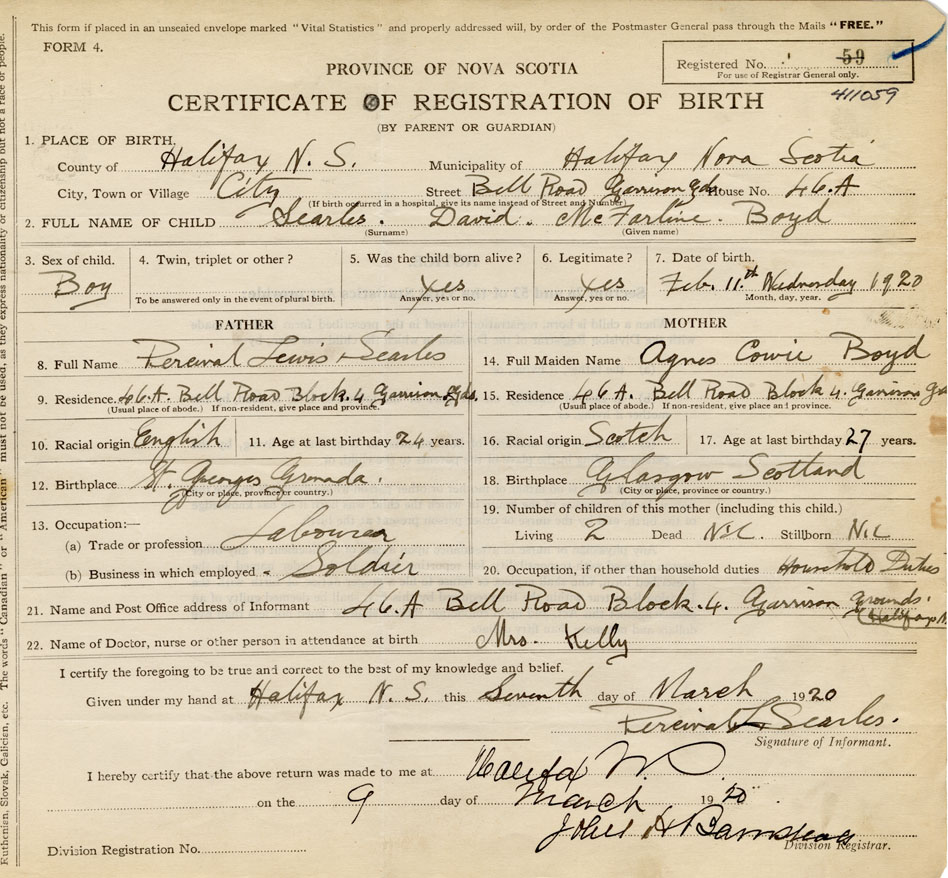 This form if placed in an unsealed envelope marked "Vital Statistics" and properly addressed will, by order of the Postmaster General pass through the Mails "FREE."
FORM 4.
Registered No. 59
For use of Registrar General only.
411059
PROVINCE OF NOVA SCOTIA
CERTIFICATE OF REGISTRATION OF BIRTH
(BY PARENT OR GUARDIAN)
1. PLACE OF BIRTH.
County of Halifax N. S. Municipality of Halifax Nova Scotia
City, Town or Village City Street Bell Road Garrison Gds. House No. 46.A
(If birth occurred in a hospital, give its name instead of Street and Number)
2. FULL NAME OF CHILD Searles. David. McFarline. Boyd
(Surname) (Given name)
3. Sex of child. 4. Twin, triplet or other? 5. Was the child born alive? 6. Legitimate? 7. Date of birth.
Boy Yes Yes Feb. 11.th Wednesday 1920
To be answered only in the event of plural birth. Answer, yes or no. Answer, yes or no. Month, day, year.
FATHER
8. Full Name Percival Lewis Searles
9. Residence 46.A. Bell Road Block. 4 Garrison Gds.
(Usual place of abode.) If non-resident, give place and province.
10. Racial origin English 11. Age at last birthday 24 years.
12. Birthplace St. Georges Grenada.
(City or place, province or country.)
13. Occupation:—
(a) Trade or profession Labourer
(b) Business in which employed - Soldier
MOTHER
14. Full Maiden Name Agnes Cowie Boyd
15. Residence 46 A. Bell Road Block 4. Garrison
(Usual place of abode.) If non-resident, give place and province.
16. Racial origin Scotch 17. Age at last birthday 27 years.
18. Birthplace Glasgow Scotland
(City or place, province or country.)
19. Number of children of this mother (including this child.)
Living 2 Dead Nil. Stillborn Nil
20. Occupation, if other than household duties Household Duties
21. Name and Post Office address of Informant 46.A Bell Road Block. 4. Garrison Grounds.
22. Name of Doctor, nurse or other person in attendance at birth Mrs. Kelly
I certify the foregoing to be true and correct to the best of my knowledge and belief.
Given under my hand at Halifax N. S. this Seventh day of March 1920
Percival L. Searles.
Signature of Informant.
I hereby certify that the above return was made to me at Halifax N.S.
on the 9 day of March 1920
John
Division Registrar.
Division Registration No.
Ruthenian, Slovak, Galician, etc. The words "Canadian" or "American" must not be used, as they express nationality or citizenship but not a race of people.